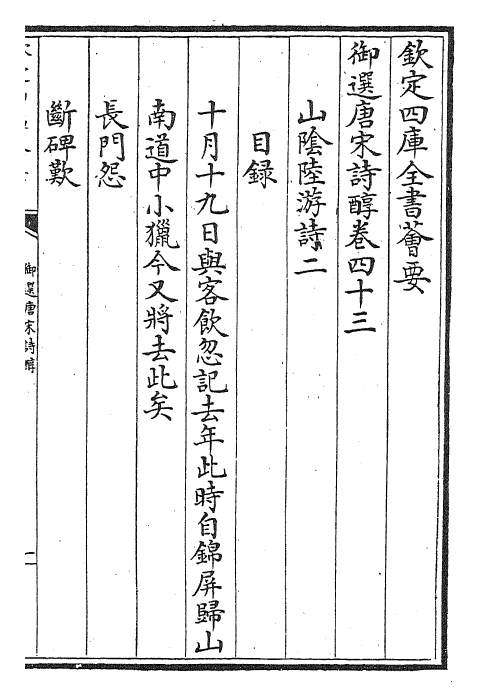 欽定四庫全書薈要
御選唐宋詩醇卷四十三
山隂陸游詩二
目録
十月十九日與客飲忽記去年此時自錦屏歸山
南道中小獵今又將去此矣
長門怨
斷碑歎
御選唐宋詩醇